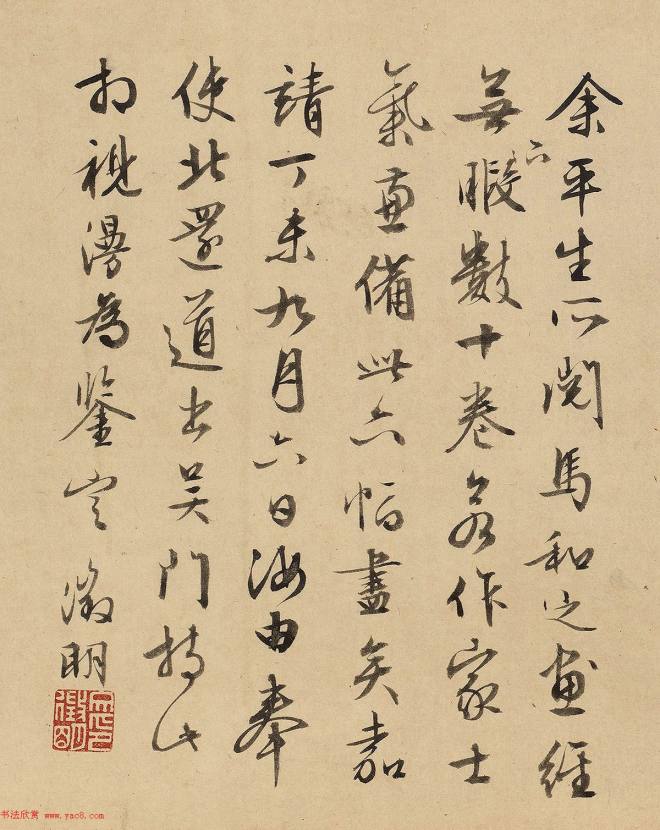 余平生所閱馬和之畫經
無暇六數十卷若作家士
氣兼備此六幅盡矣嘉
靖丁未九月六日汝由奉
使北還道出吳門持此
相視漫為鑒定 徵明
書法欣赏 www.yac8.com